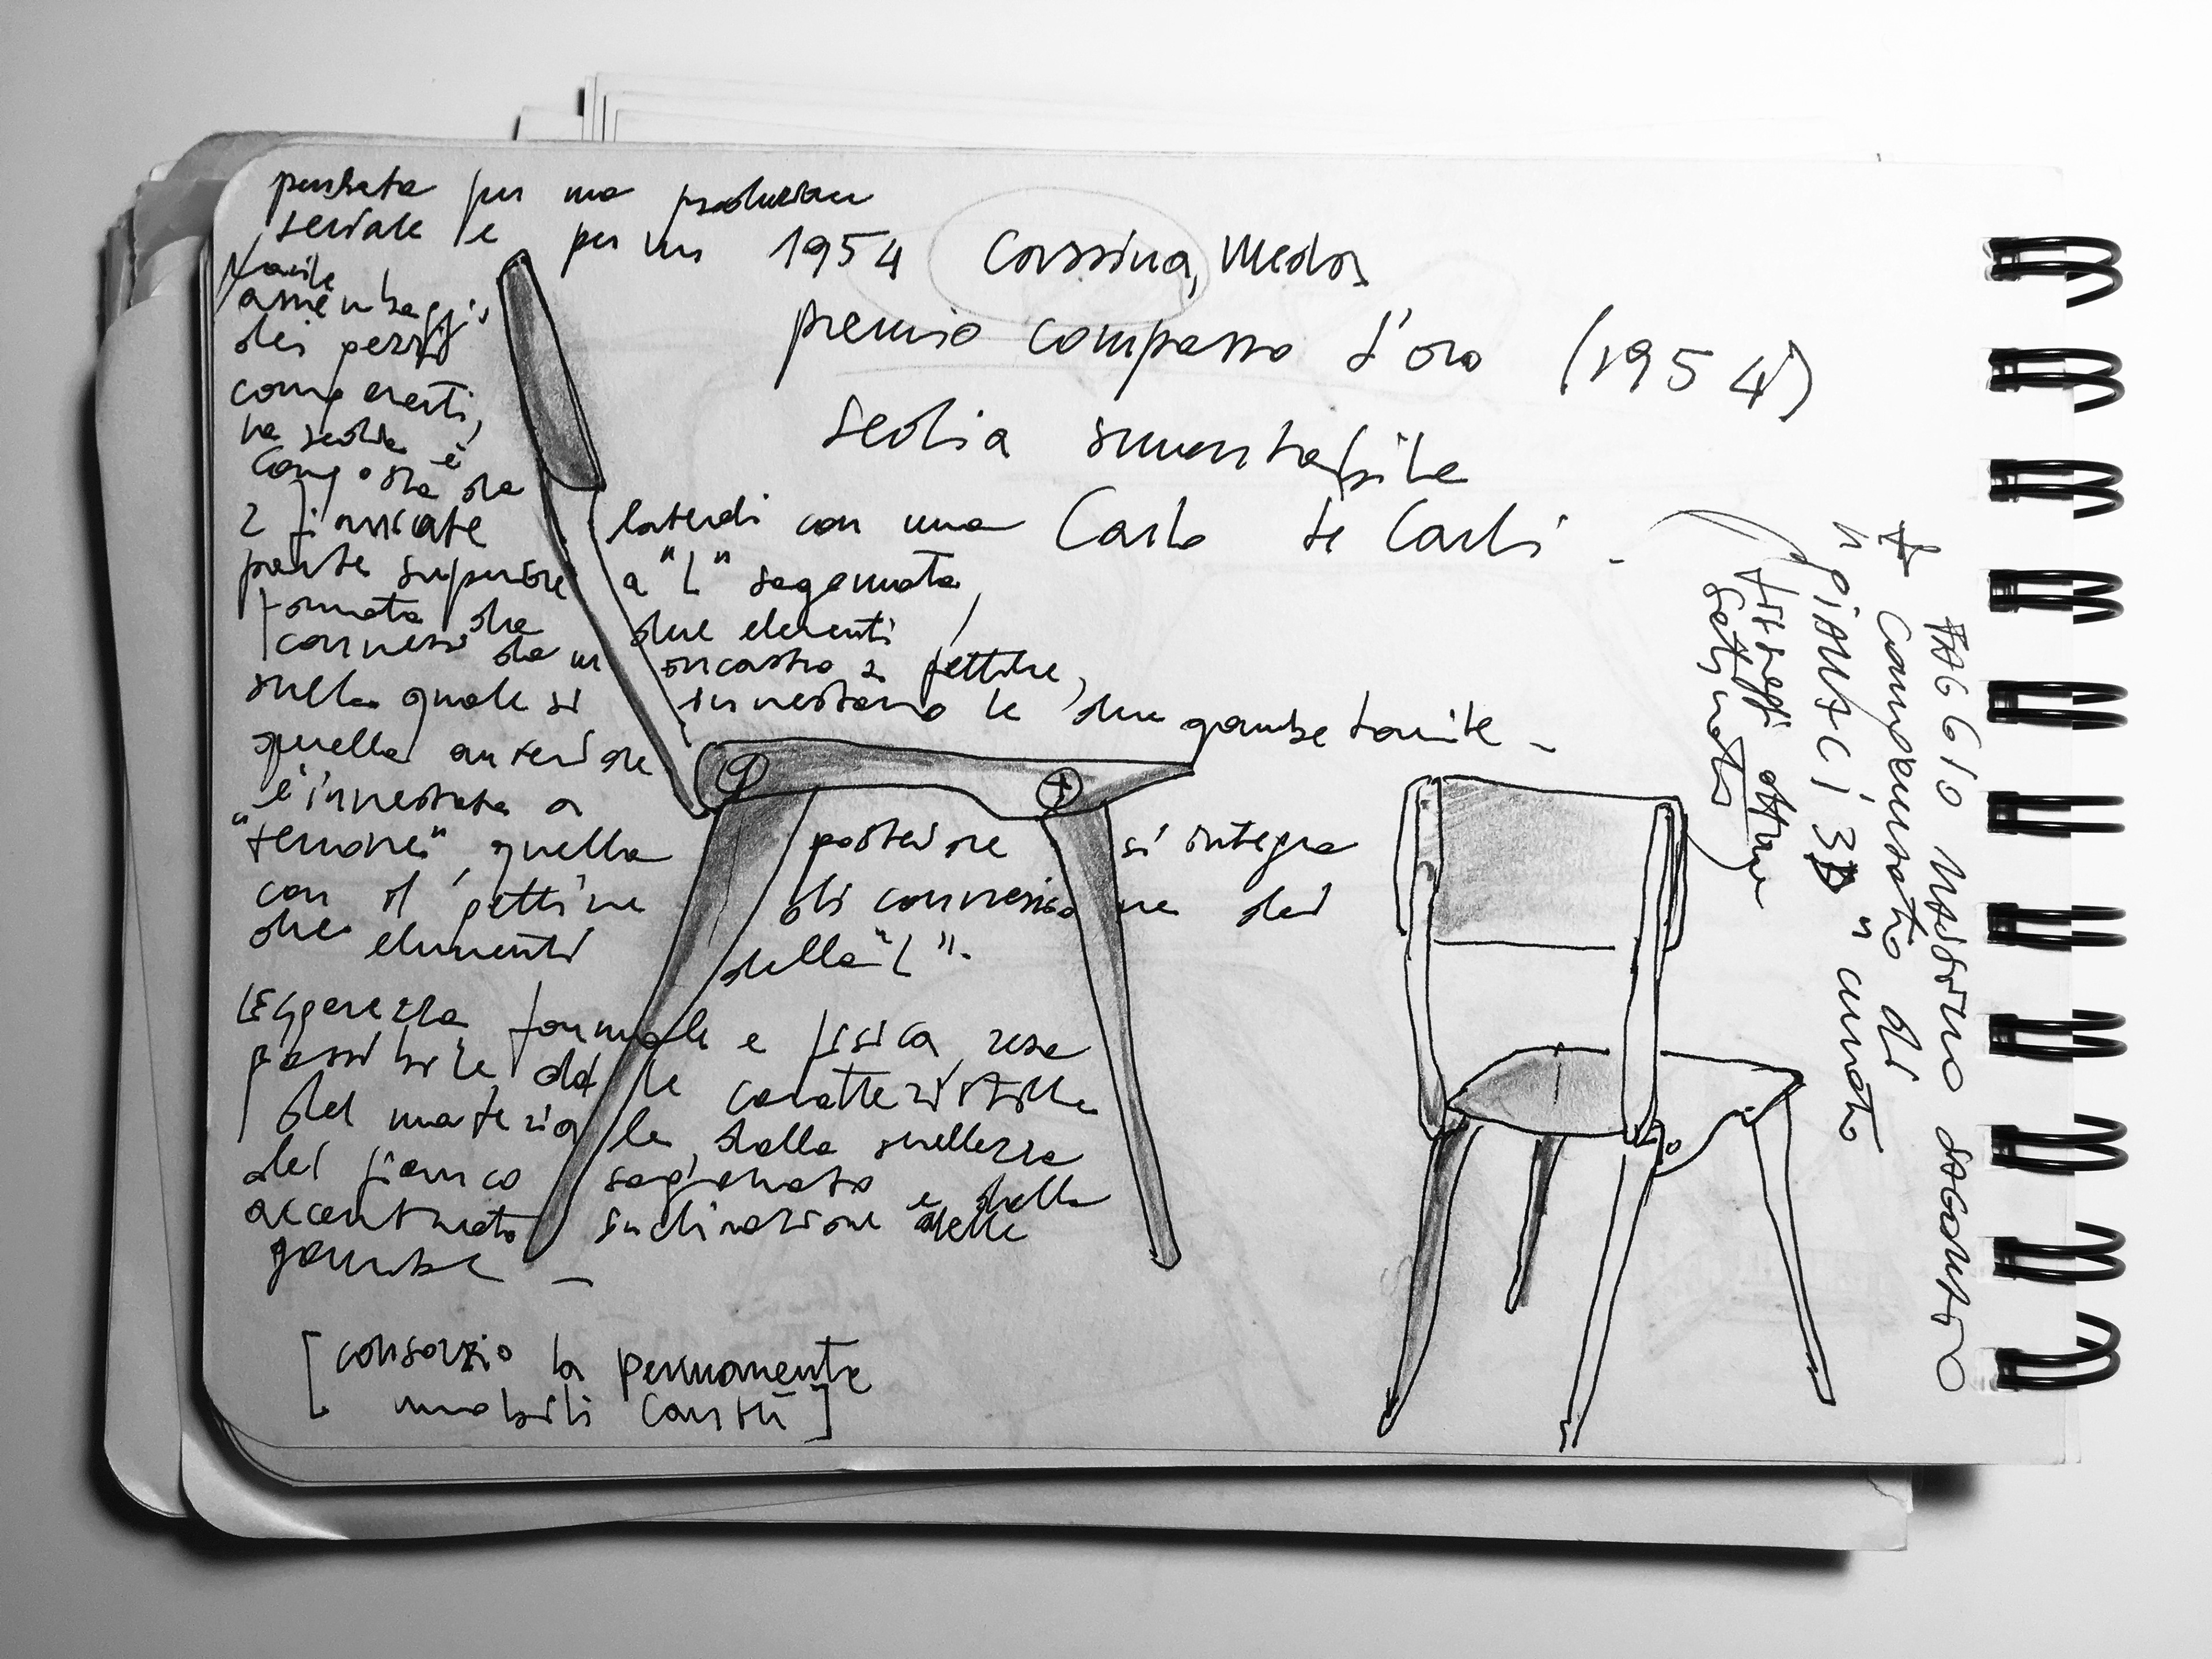 pensata per una produzione
seriale e per un 1954 Cassina, Meda,
facile
assemblaggio
dei pezzi
componenti,
la sedia è
composta da
premio compasso d'oro (1954)
sedia smontabile
Carlo de Carli.
2 fiancate laterali con una
parte superiore a "L" sagomata,
formata da due elementi
connessi da un incastro a pettine,
sulla quale si innestano le due gambe tornite -
quella anteriore
è innestata a
"tenone", quella posteriore si integra
con il pettine di connessione dei
due elementi della "L".
LEggerezza formale e fisica rese
possibile dalle caratteristiche
del materiale, dalla snellezza
del fianco sagomato e dalla
accentuata inclinazione delle
gambe -
[consorzio la permanente
mobili Cantù]
FAGGIO MASSELLO SAGOMATO
compensato di
PIANTA CI 3D " curvato
fissaggi ottone
satinato